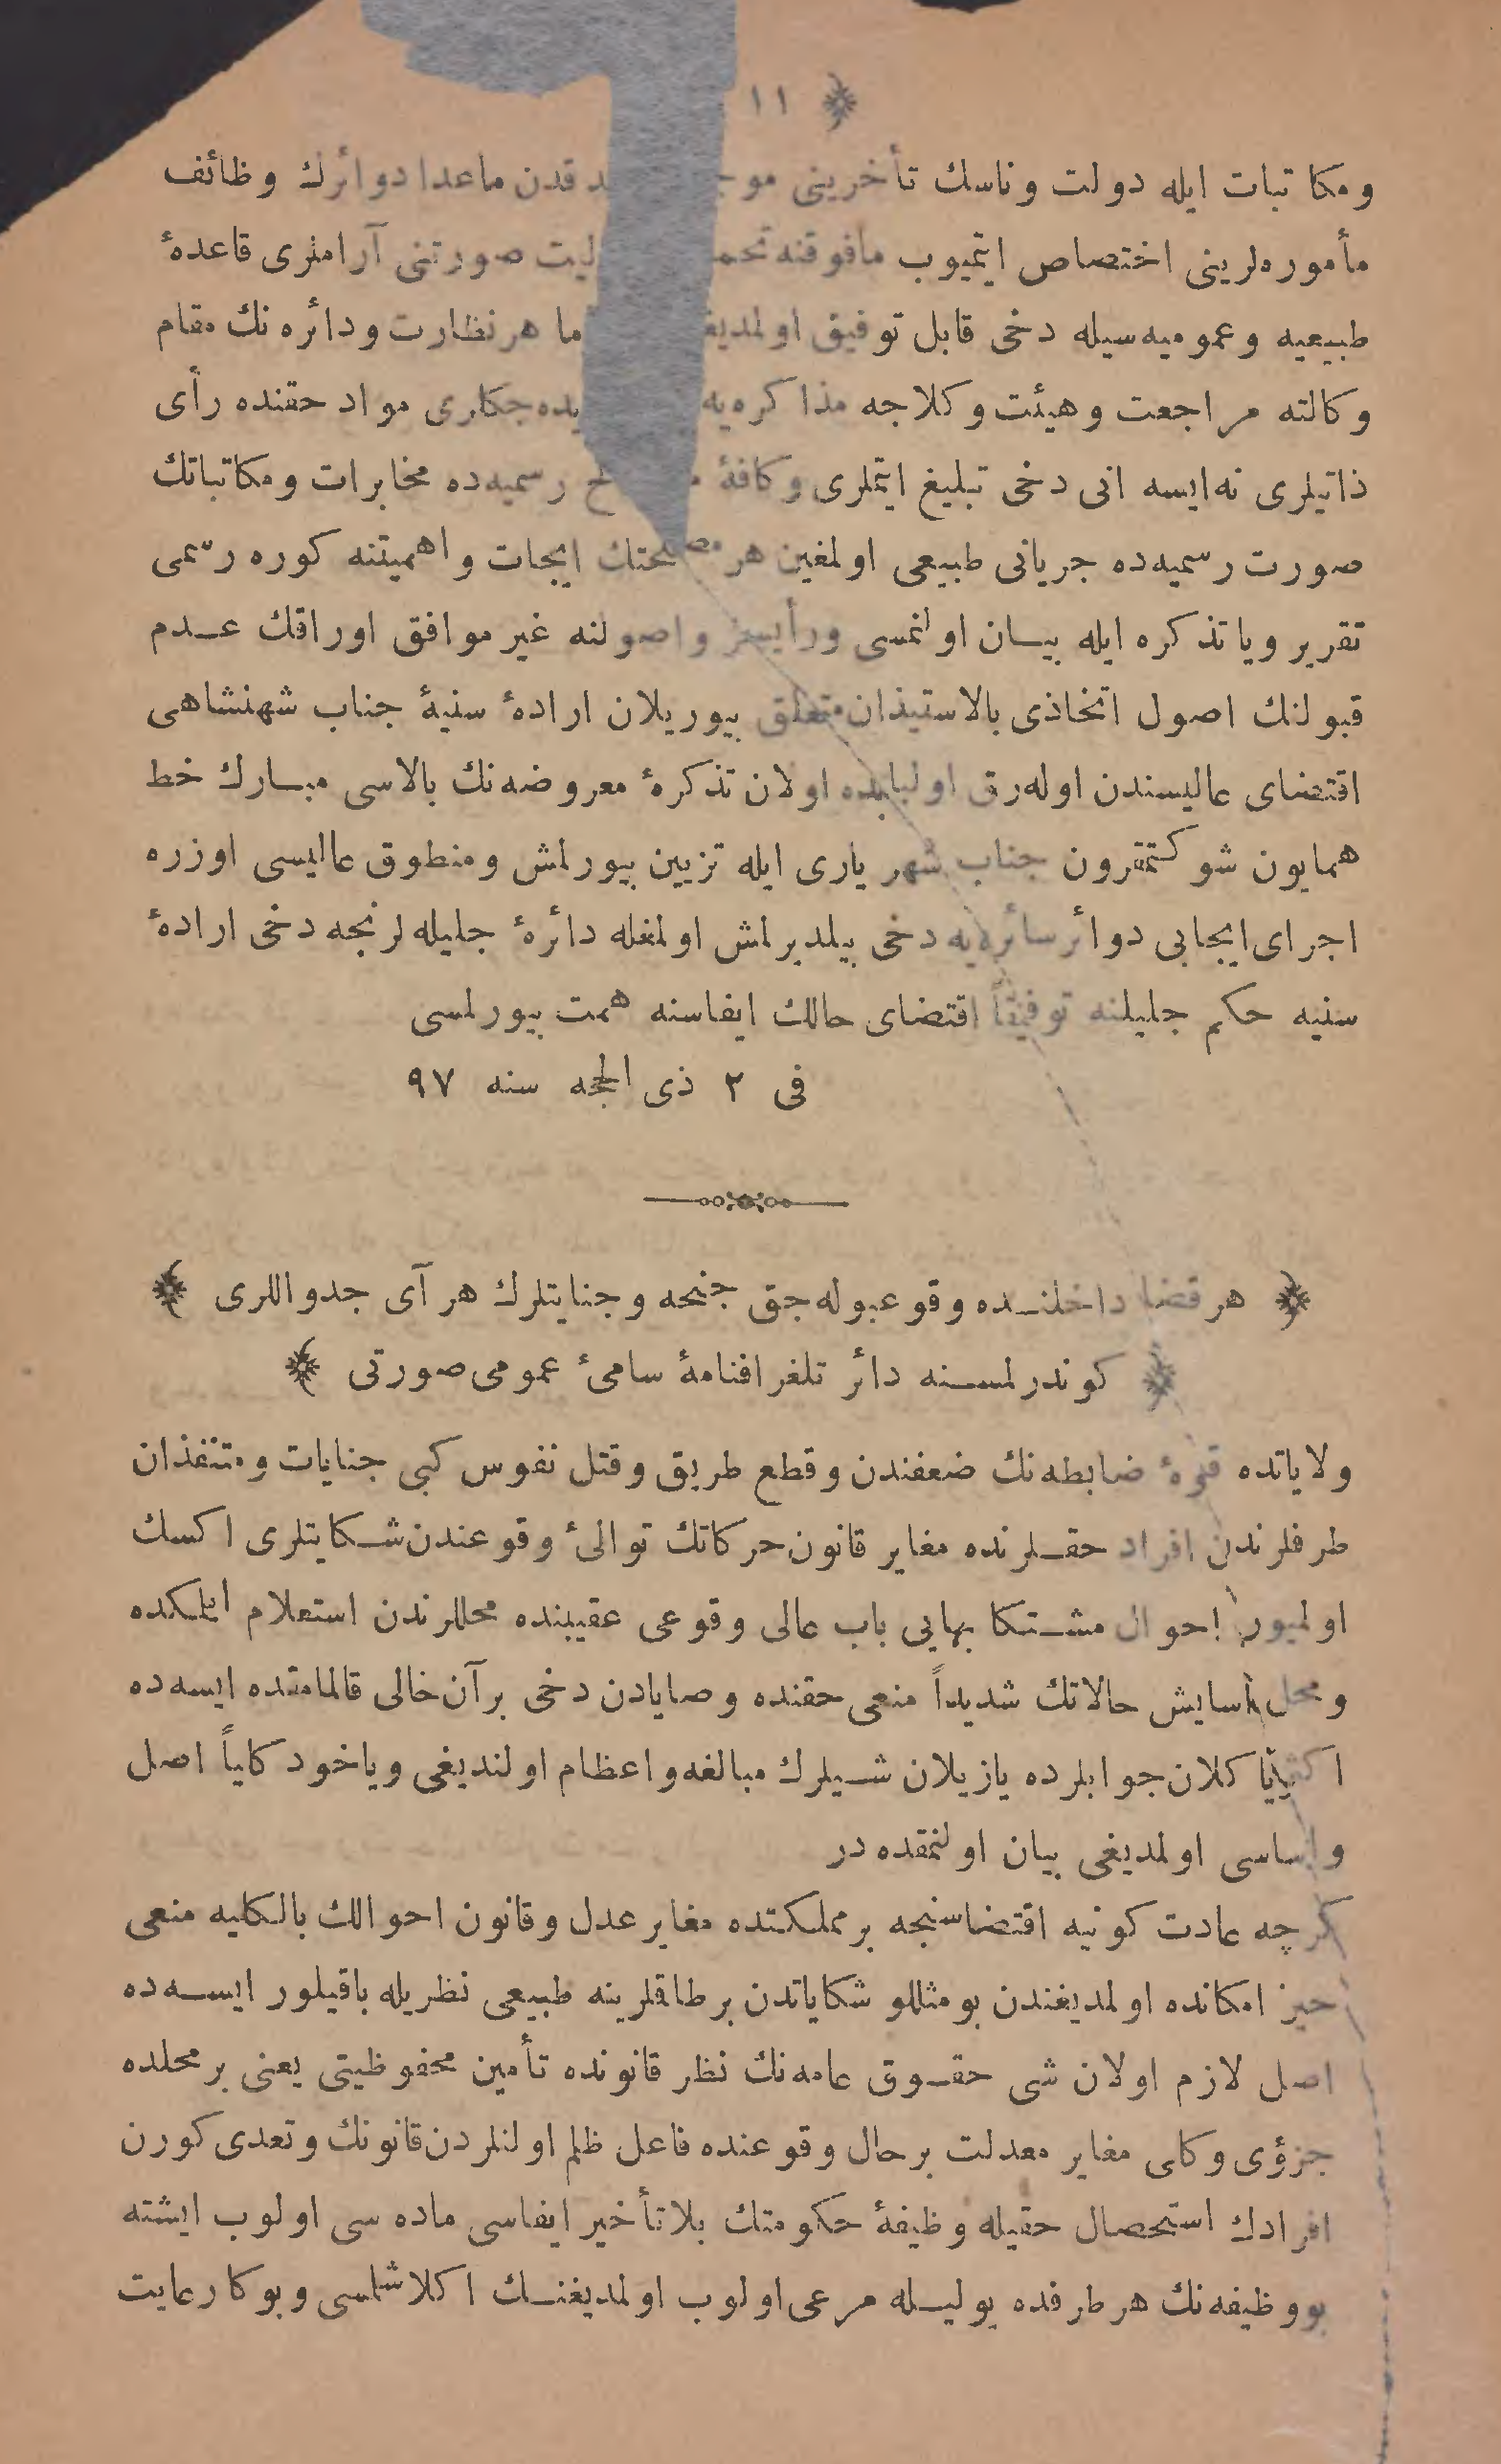 ﴿ ١١
ومكاتبات ايله دولت وناسك تأخرينى قدن ماعدا دوائرك وظائف
مأموره‌لرينى اختصاص ايتميوب مافوقنه صورتنى آراملرى قاعدهٔ
طبيعيه وعموميه‌سيله دخى قابل توفيق هر نظارت ودائره نك مقام
وكالته مراجعت وهيئت وكلاجه مذاكره‌يه مواد حقنده رأى
ذاتيلرى نه‌ايسه انى دخى تبليغ ايتملرى وكافهٔ رسميه‌ده مخابرات ومكاتباتك
صورت رسميه‌ده جريانى طبيعى اولمغين هر مصلحتك ايجات واهميتنه كوره رسمى
تقرير وياتذكره ايله بيان اولنمسى ورأيسز واصولنه غير موافق اوراقك عدم
قبولنك اصول اتخاذى بالاستيذان متعلق بيوريلان ارادهٔ سنيهٔ جناب شهنشاهى
اقتضاى عاليسندن اوله‌رق اولبابده اولان تذكرهٔ معروضه‌نك بالاسى مبارك خط
همايون شوكتمقرون جناب شهريارى ايله تزيين بيورلمش ومنطوق عاليسى اوزره
اجراى ايجابى دوائر سائره‌يه دخى بيلديرلمش اولمغله دائرهٔ جليله‌لرنجه دخى ارادهٔ
سنيه حكم جليلنه توفيقاً اقتضاى حالك ايفاسنه همت بيورلمسى
فى ٢ ذى الحجه سنه ٩٧
﴿ هر قضا داخلنده وقوعبوله‌جق جنحه وجنايتلرك هر آى جدواللرى ﴾
﴿ كوندرلمسنه دائر تلغرافنامهٔ سامىٔ عمومى صورتى ﴾
ولاياتده قوهٔ ضابطه‌نك ضعفندن وقطع طريق وقتل نفوس كبى جنايات ومتنفذان
طرفلرندن افراد حقلرنده مغاير قانون حركاتك توالىٔ وقوعندن شكايتلرى اكسك
اولميور احوال مشتكا بهايى باب عالى وقوعى عقيبنده محللرندن استعلام ايلكده
ومحل آسايش حالاتك شديداً منعى حقنده وصايادن دخى برآن خالى قالمامقده ايسه‌ده
اكثريا كلان جوابلرده يازيلان شيلرك مبالغه واعظام اولنديغى وياخود كلياً اصل
واساسى اولمديغى بيان اولنمقده در
كرچه عادت كونيه اقتضاسنجه بر مملكتده مغاير عدل وقانون احوالك بالكليه منعى
حيز امكانده اولمديغندن بومثللو شكاياتدن برطاقلرينه طبيعى نظريله باقيلور ايسه‌ده
اصل لازم اولان شى حقوق عامه‌نك نظر قانونده تأمين محفوظيتى يعنى بر محلده
جزؤى وكلى مغاير معدلت برحال وقوعنده فاعل ظلم اولنلردن قانونك وتعدى كورن
افرادك استحصال حقيله وظيفهٔ حكومتك بلاتأخير ايفاسى ماده سى اولوب ايشته
بووظيفه‌نك هرطرفده يوليله مرعى اولوب اولمديغنك اكلاشلمسى وبوكا رعايت